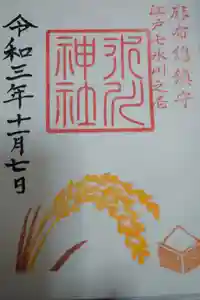 麻布總鎮守
江戸七氷川之
氷川
神社
令和三年十一月七日